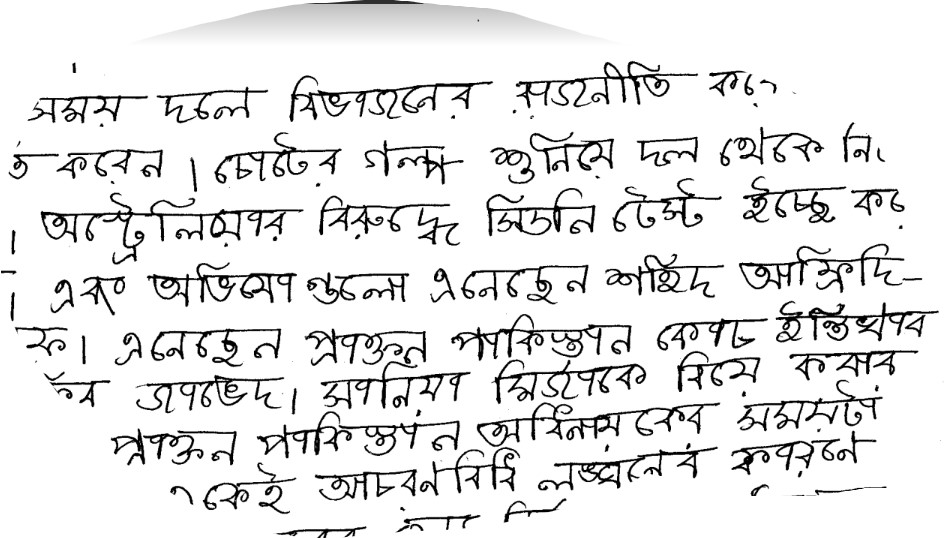 সময় দলে বিভাজনের রাজনীতি
করেন। চোটের গল্প শুনিয়ে দল থেকে
। অস্ট্রেলিয়ার বিরুদ্ধে সিডনি টেস্ট ইচ্ছে
। এবং অভিযোগগুলো এনেছেন শহিদ আফ্রিদি-
। এনেছেন প্রাক্তন পাকিস্তান কোচ ইন্তিখাব
জাভেদ। সানিয়া মির্জাকে বিয়ে করার
প্রাক্তন পাকিস্তান অধিনায়কের সময়টা
আচরণবিধি লঙ্ঘনের কারণে